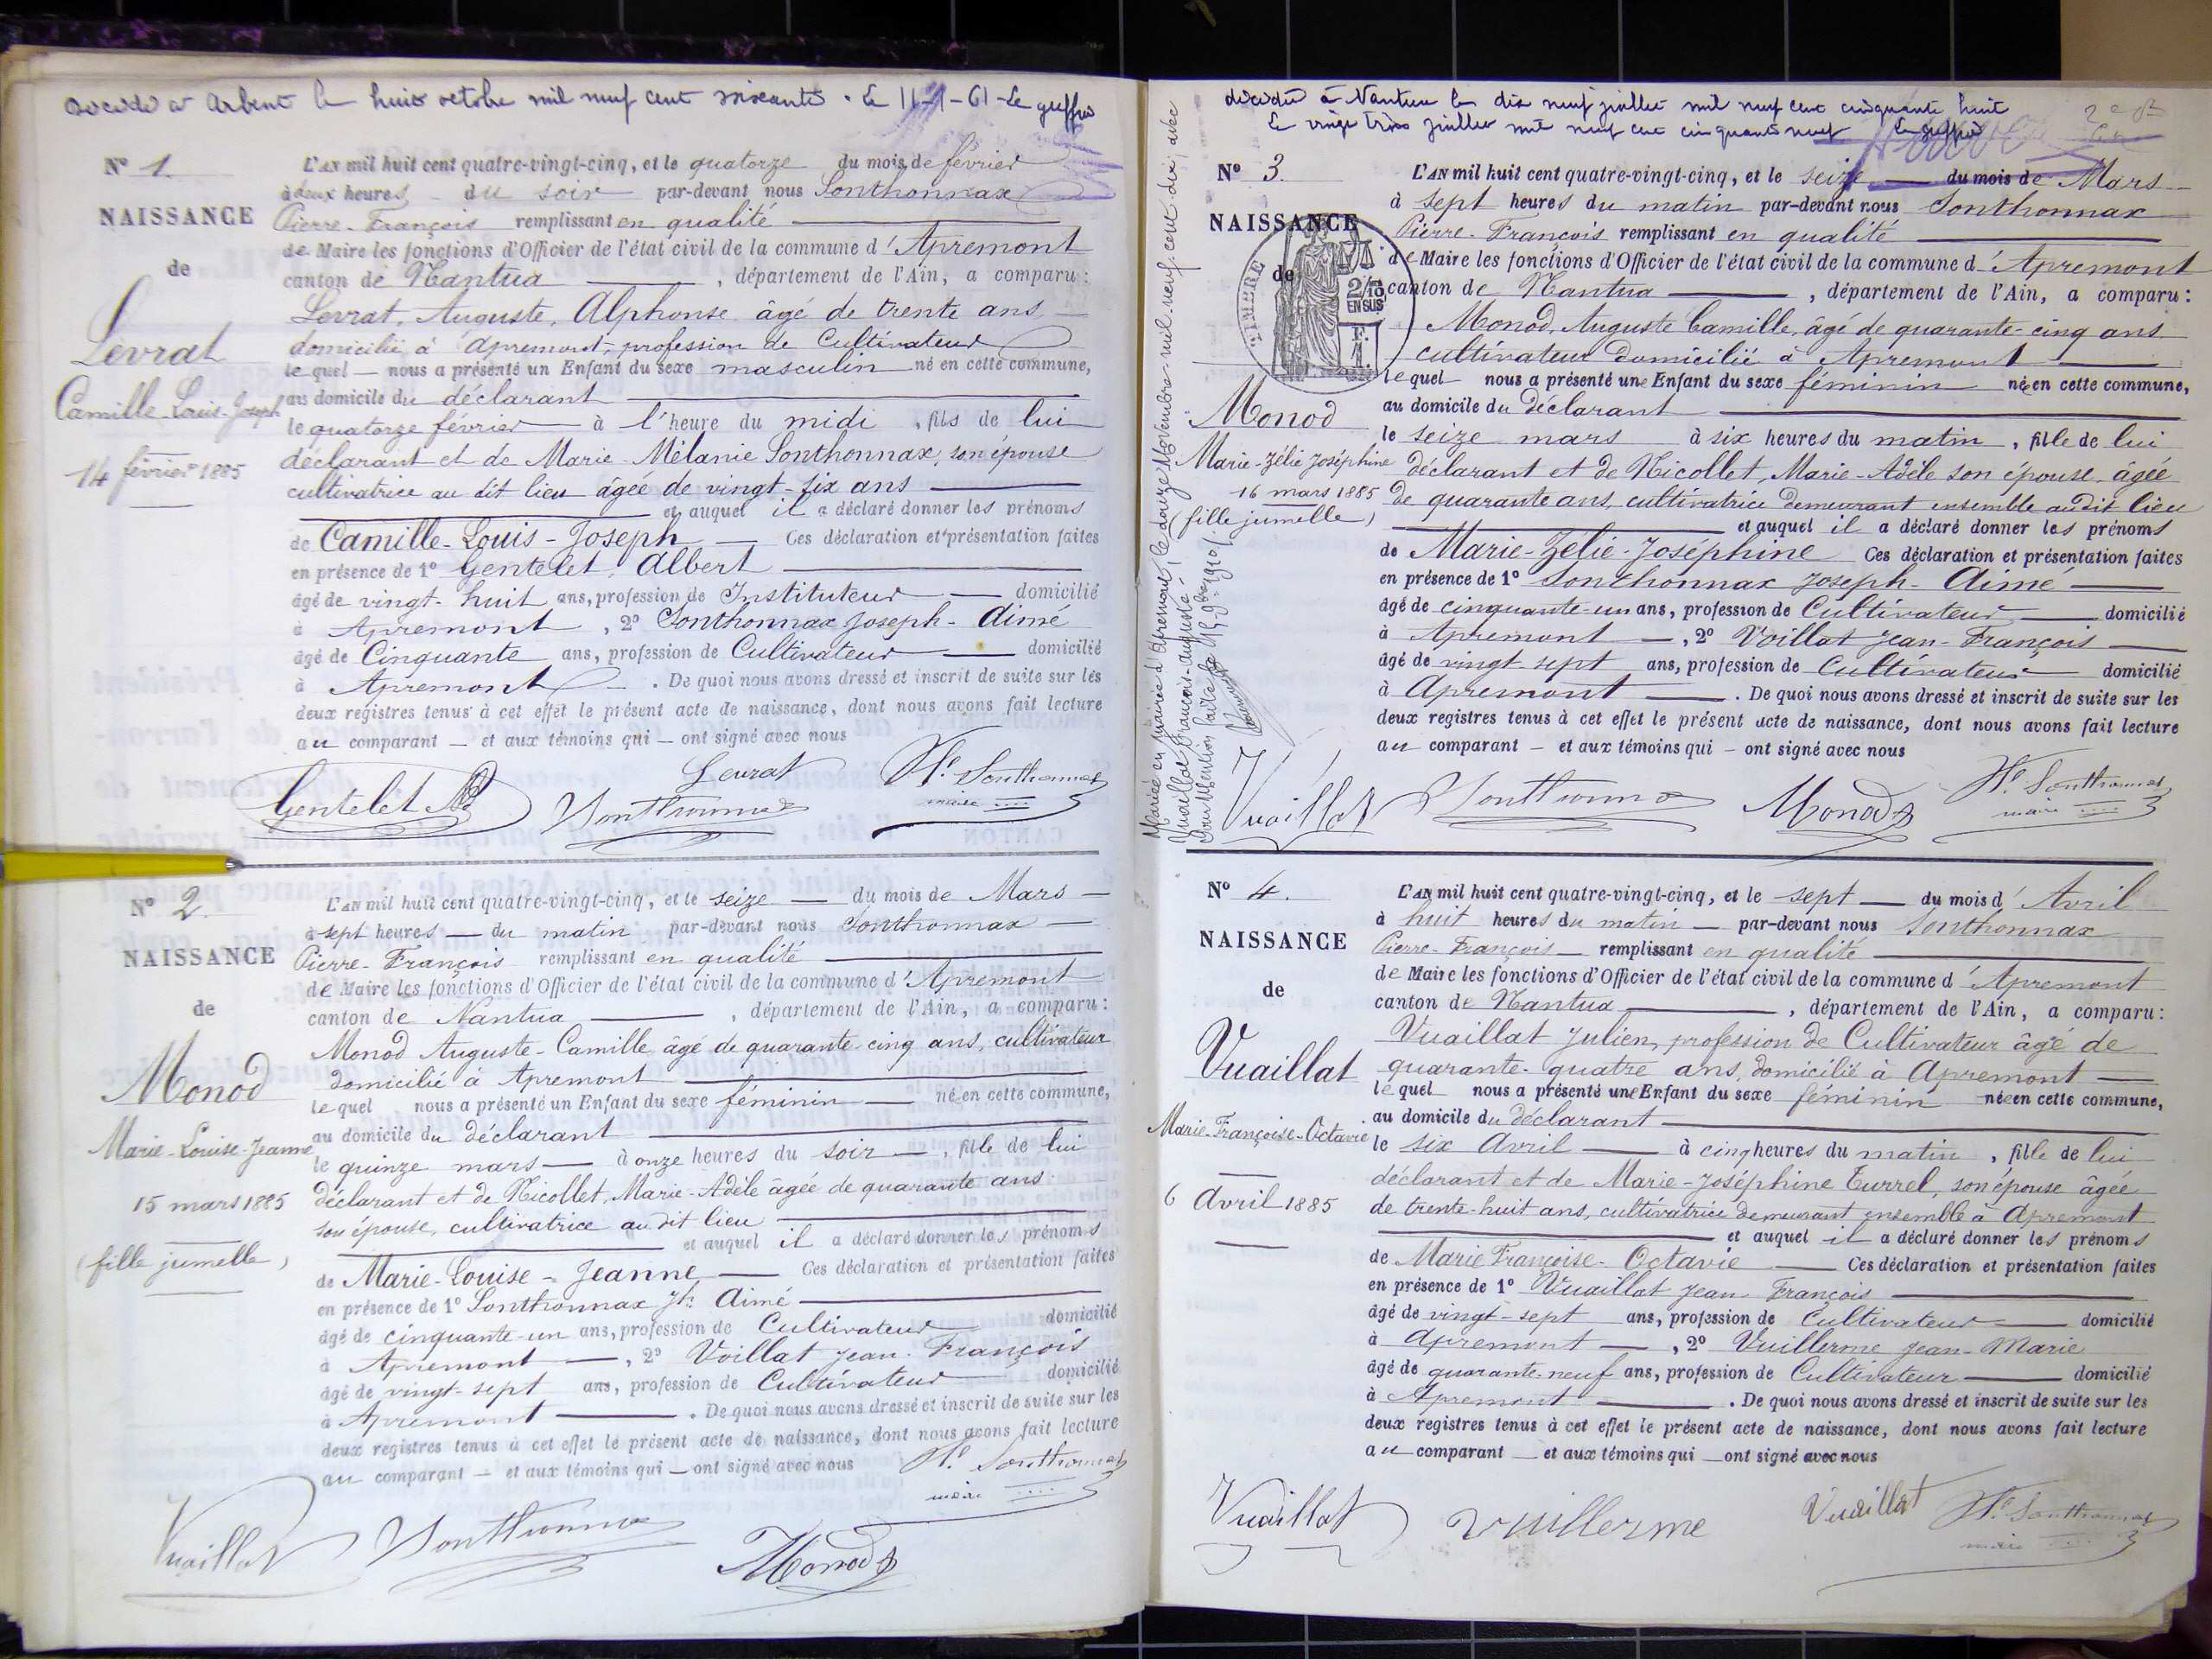 decedé a Arbent le huit octobre mil neuf cent soixante . Le 11-1-61-Le greffier
N° 1.
NAISSANCE
de
Levrat
Camille-Louis-Joseph
14 février 1885
L'AN mil huit cent quatre-vingt-cinq, et le quatorze du mois de février
à deux heures du soir par-devant nous Sonthonnax
Pierre-François remplissant en qualité
de Maire les fonctions d'Officier de l'état civil de la commune d'Apremont
canton de Nantua , département de l'Ain, a comparu :
Levrat, Auguste, Alphonse âgé de trente ans
domicilié à Apremont, profession de Cultivateur
lequel nous a présenté un Enfant du sexe masculin né en cette commune,
au domicile du déclarant
le quatorze février à l'heure du midi , fils de lui
déclarant et de Marie-Mélanie Sonthonnax, son épouse
cultivatrice au dit lieu âgée de vingt-six ans
et auquel il a déclaré donner les prénoms
de Camille-Louis-Joseph Ces déclaration et présentation faites
en présence de 1° Gentelet, Albert
âgé de vingt-huit ans, profession de Instituteur domicilié
à Apremont , 2° Sonthonnax Joseph-Aimé
âgé de Cinquante ans, profession de Cultivateur domicilié
à Apremont . De quoi nous avons dressé et inscrit de suite sur les
deux registres tenus à cet effet le présent acte de naissance, dont nous avons fait lecture
au comparant et aux témoins qui ont signé avec nous
Gentelet Sonthonnax Levrat Sonthonnax
maire
N° 2.
NAISSANCE
de
Monod
Marie-Louise-Jeanne
15 mars 1885
(fille jumelle)
L'AN mil huit cent quatre-vingt-cinq, et le seize du mois de Mars
à sept heures du matin par-devant nous Sonthonnax
Pierre-François remplissant en qualité
de Maire les fonctions d'Officier de l'état civil de la commune d'Apremont
canton de Nantua , département de l'Ain, a comparu :
Monod Auguste-Camille âgé de quarante-cinq ans, cultivateur
domicilié à Apremont
lequel nous a présenté un Enfant du sexe féminin née en cette commune,
au domicile du déclarant
le quinze mars à onze heures du soir , fille de lui
déclarant et de Nicollet, Marie-Adèle âgée de quarante ans
son épouse, cultivatrice au dit lieu
et auquel il a déclaré donner les prénoms
de Marie-Louise-Jeanne Ces déclaration et présentation faites
en présence de 1° Sonthonnax Jh Aimé
âgé de cinquante-un ans, profession de Cultivateur domicilié
à Apremont , 2° Voillat Jean-François
âgé de vingt-sept ans, profession de Cultivateur domicilié
à Apremont . De quoi nous avons dressé et inscrit de suite sur les
deux registres tenus à cet effet le présent acte de naissance, dont nous avons fait lecture
au comparant et aux témoins qui ont signé avec nous
Sonthonnax
maire
Vuaillat Sonthonnax Monod
décédée à Nantua le dix neuf juillet mil neuf cent cinquante huit
Le vingt trois juillet mil neuf cent cinquante neuf Le greffier
N° 3.
NAISSANCE
de
TIMBRE
2/10
EN SUS
F.
1.
Monod
Marie-Zélie Joséphine
16 mars 1885
(fille jumelle)
Mariée en mairie d'Apremont le douze Novembre mil neuf cent dix, avec
Vuaillat François-Auguste
L'AN mil huit cent quatre-vingt-cinq, et le seize du mois de Mars
à sept heures du matin par-devant nous Sonthonnax
Pierre-François remplissant en qualité
de Maire les fonctions d'Officier de l'état civil de la commune d'Apremont
canton de Nantua , département de l'Ain, a comparu :
Monod, Auguste Camille, âgé de quarante-cinq ans
cultivateur domicilié à Apremont
lequel nous a présenté une Enfant du sexe féminin née en cette commune,
au domicile du déclarant
le seize mars à six heures du matin , fille de lui
déclarant et de Nicollet, Marie-Adèle son épouse, âgée
de quarante ans, cultivatrice demeurant ensemble audit lieu
et auquel il a déclaré donner les prénoms
de Marie-Zélie-Joséphine Ces déclaration et présentation faites
en présence de 1° Sonthonnax Joseph-Aimé
âgé de cinquante-un ans, profession de Cultivateur domicilié
à Apremont , 2° Voillat Jean-François
âgé de vingt-sept ans, profession de Cultivateur domicilié
à Apremont . De quoi nous avons dressé et inscrit de suite sur les
deux registres tenus à cet effet le présent acte de naissance, dont nous avons fait lecture
au comparant et aux témoins qui ont signé avec nous
Vuaillat Sonthonnax Monod Sonthonnax
maire
N° 4.
NAISSANCE
de
Vuaillat
Marie-Françoise-Octavie
6 Avril 1885
L'AN mil huit cent quatre-vingt-cinq, et le sept du mois d'Avril
à huit heures du matin par-devant nous Sonthonnax
Pierre-François remplissant en qualité
de Maire les fonctions d'Officier de l'état civil de la commune d'Apremont
canton de Nantua , département de l'Ain, a comparu :
Vuaillat Julien, profession de Cultivateur âgé de
quarante-quatre ans, domicilié à Apremont
lequel nous a présenté une Enfant du sexe féminin née en cette commune,
au domicile du déclarant
le six Avril à cinq heures du matin , fille de lui
déclarant et de Marie-Joséphine Turrel, son épouse âgée
de trente-huit ans, cultivatrice demeurant ensemble à Apremont
et auquel il a déclaré donner les prénoms
de Marie Françoise-Octavie Ces déclaration et présentation faites
en présence de 1° Vuaillat Jean François
âgé de vingt-sept ans, profession de Cultivateur domicilié
à Apremont , 2° Vuillerme Jean-Marie
âgé de quarante-neuf ans, profession de Cultivateur domicilié
à Apremont . De quoi nous avons dressé et inscrit de suite sur les
deux registres tenus à cet effet le présent acte de naissance, dont nous avons fait lecture
au comparant et aux témoins qui ont signé avec nous
Vuaillat Vuillerme Vuaillat Sonthonnax
maire